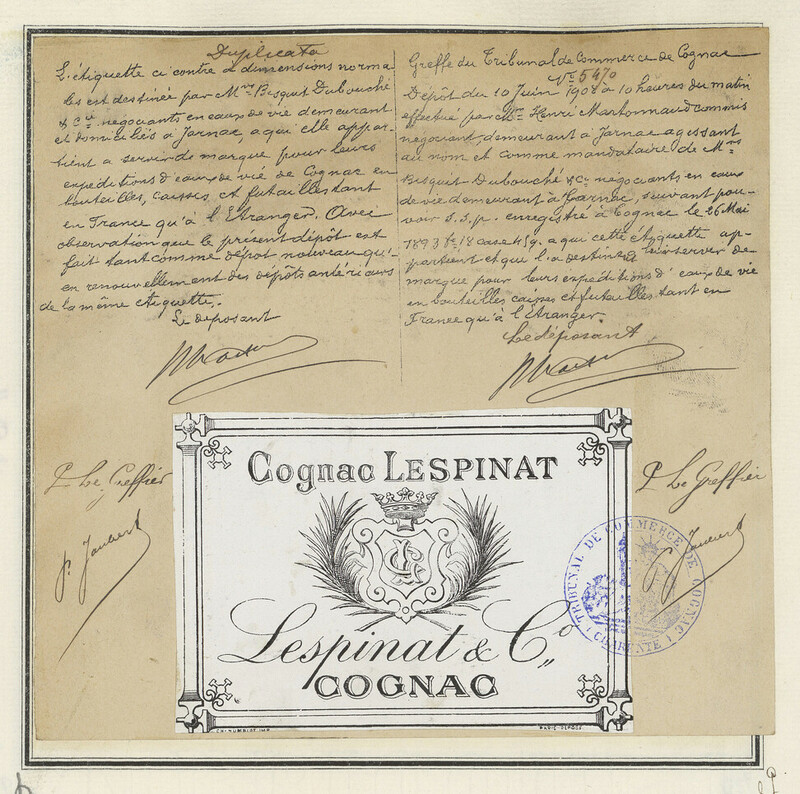 Duplicata
L'étiquette ci contre à dimensions norma
les est destinée par Mrs Bisquit Dubouché
& Cie négociants en eaux de vie demeurant
et domiciliés à Jarnac, a qui elle appar-
tient a servir de marque pour leurs
expéditions d'eaux de vie de Cognac en
bouteilles, caisses, et futailles tant
en France qu'à l'Etranger. Avec
observation que le présent dépôt est
fait tant comme dépôt nouveau qu'
en renouvellement des dépôts antérieurs
de la même étiquette.
Le déposant
Greffe du Tribunal de Commerce de Cognac
No 5470
Dépôt du 10 Juin 1908 à 10 heures du matin
effectué par Mr Henri Marbonnaud commis
négociant, demeurant à Jarnac agissant
au nom et comme mandataire de Mrs
Bisquit-Dubouché & Ce négociants en eaux
de vie demeurant à Jarnac, suivant pou-
voir S.S.p. enregistré à Cognac le 26 Mai
1893 fo 18 case 459. a qui cette étiquette ap-
partient et qui l'a destinée à servir de
marque pour leurs expéditions d'eaux de vie
en bouteilles caisses et futailles tant en
France qu'à l'Etranger.
Le déposant
P. Le Greffier
P. Le Greffier
Cognac LESPINAT
Lespinat & Co
COGNAC
TRIBUNAL DE COMMERCE DE COGNAC
(CHARENTE)